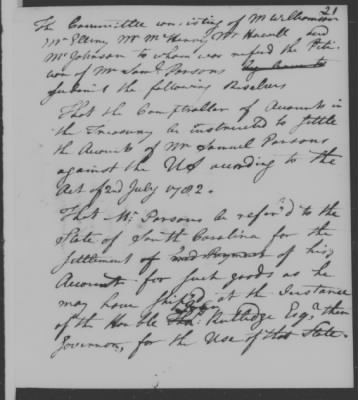 21
The Committee consisting of Mr Williamson
Mr Ellery Mr McHenry Mr Howell and
Mr Johnson to whom was referd the Peti-
tion of Mr Saml Parsons
submit the following Resolves
That the Comptroller of Accounts in
the Treasury be instructed to settle
the Accounts of Mr Samuel Parsons
against the US according to the
Act of 2d July 1782.
That Mr Parsons be referd to the
State of South Carolina for the
settlement of his
Account for such goods as he
may have shipped at the Instance
of the Honble Rutledge Esqr then
Governor, for the Use of that State.